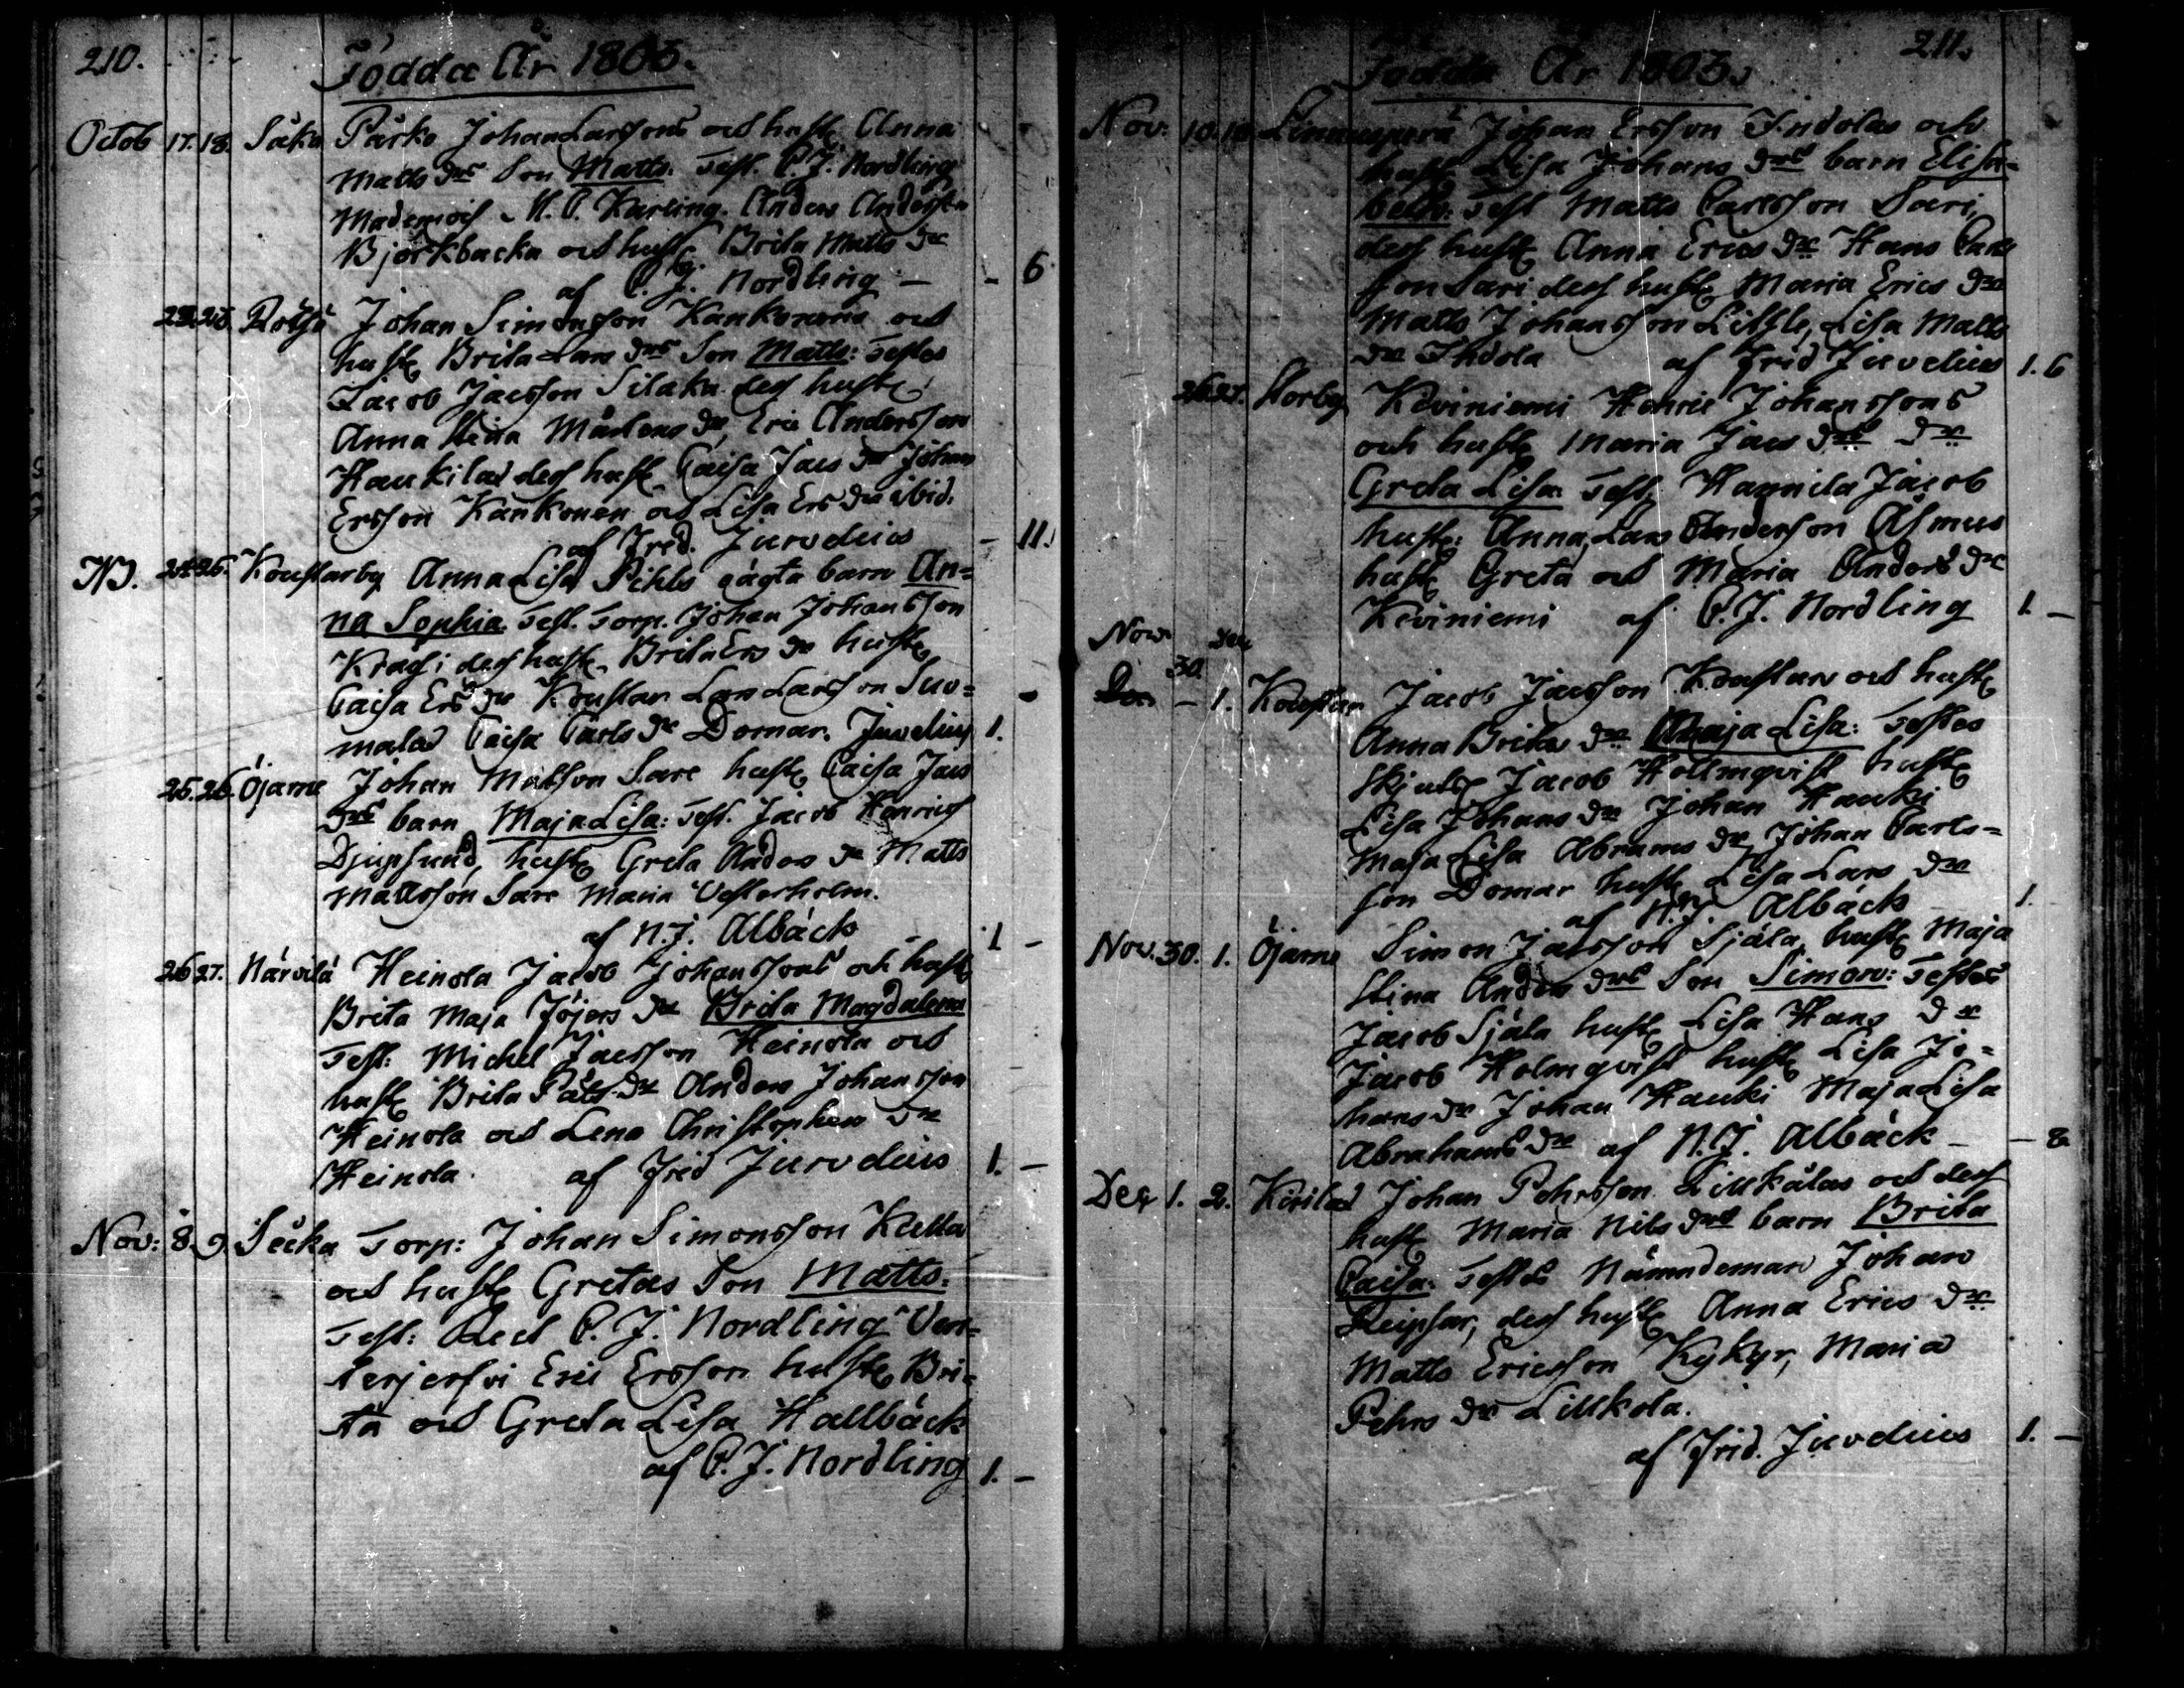 210.
Födda År 1803.
Octob 17. 18. Såka Pårko Johan Larssons och hust. Anna
Matts drs Son Matts: Test. C. J. Nordling
Mademois M. C. Karling. Anders Anderss.
Björkbacka och hust. Brita Matts dr
af C. J. Nordling – – 6
Johan Simonsson Kankonens och
hust. Brita Lars drs Son Matts: Testes
Jacob Jacsson Silaka des hust.
Anna Stina Mårtens dr, Eric Andersson
Haukilas des hust. Caisa Jacs dr Johan
Ersson Kankonen och Lisa Ers dr ibid.
af Fred. Juvelius – 11.
24 25. Kouslarby Anna Lisa Pihls oägta barn An=
na Sophia Test. Torp. Johan Johansson
Krags des hust. Brita Ers dr hust.
Caisa Ers dr Kouslar Lars Larsson Suo=
malas Caisa Carls dr Domar. Juvelius 1.
25. 26. Öjarne Johan Matsson Sare hust. Caisa Jacs
drs barn Maja Lisa: Test. Jacob Henrics
Djupsund, hust. Greta Anders dr Matts
Mattsson Sare Maria Vesterholm.
af N. J. Albäck 1 –
26 27. Närvilä Heinola Jacob Johanssons och hust.
Brita Maja Jöjers dr Brita Magdalena
Test: Michel Jacsson Heinola och
hust. Brita Påls dr Anders Johansson
Heinola och Lena Christophers dr
Heinola. af Frid Juvelius 1. –
Nov: 8. 9. Såcka Torp: Johan Simonsson Kulla
och hust. Gretas Son Matts.
Test: C. J. Nordling Ven=
terjerfvi Eric Ersson hust. Bri=
ta och Greta Lisa Hallbäck
af C. J. Nordling 1. –
211.
Födda År 1803.
Nov: 10. Linnusperä Johan Ersson Indolas och
hust. Lisa Johans drs barn Elisa=
beth: Test Matts Carlsson Sari,
des hust. Anna Erics dr Hans Carls
son Sari des hust. Maria Erics dr
Matts Johansson Lillle, Lisa Matts
dr Indola af Frid Juvelius 1. 6
26. 27. Storby Keviniemi Henric Johanssons
och hust. Maria Jacs drs dr
Greta Lisa: Test. Hannila Jacob
hust: Anna, Lars Andersson Åsmus
hust. Greta och Maria Anders dr
Keviniemi af C. J. Nordling 1. –
Nov.
30. 1. Kouslar Jacob Jacsson Kouslars och hust.
Anna Britas dr Maja Lisa: Testes
Skjuts Jacob Hollmqvist hust.
Lisa Johans dr Johan Hauki
Maja Lisa Abrams dr Johan Carls=
son Domar hust. Lisa Lars dr
af N. J. Albäck 1.
Nov. 30. 1. Öjarne Simon Jacsson Själa, hust. Maja
Stina Anders drs Son Simon: Testes
Jacob Själa hust. Lisa Hans dr
Jacob Holmqvist hust. Lisa Jo=
hans dr Johan Hauki Maja Lisa
Abrahams dr af N. J. Albäck – – 8.
Dec 1. 2. Kirilas Johan Pehrsson Lillkålas och des
hust. Maria Nils drs barn Brita
Caisa: Testes Nämndeman Johan
Leipsar, des hust. Anna Erics dr
Matts Ericsson Kykyr, Maria
Pehrs dr Lillkola.
af Frid. Juvelius 1. –